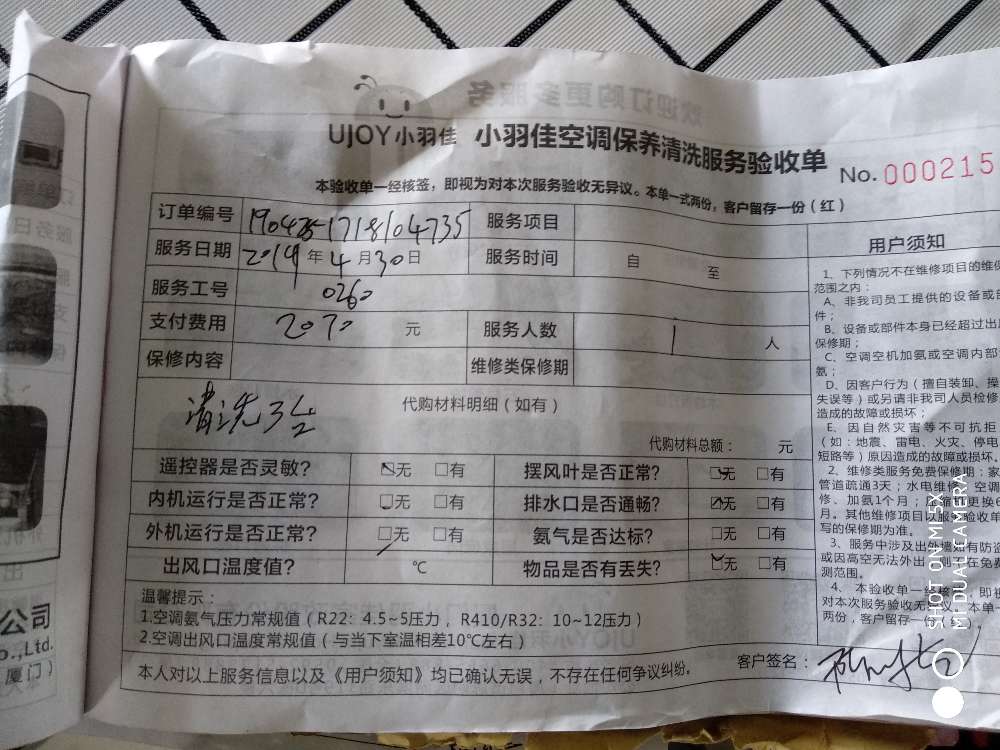 欢迎订购更多服务
UJOY小羽佳 小羽佳空调保养清洗服务验收单 No.000215
本验收单一经核签，即视为对本次服务验收无异议。本单一式两份，客户留存一份（红）
订单编号 服务项目
服务日期 2019年4月30日 服务时间 自 至
服务工号 0260
支付费用 元 服务人数 1 人
保修内容 维修类保修期
清洗3台 代购材料明细（如有）
代购材料总额： 元
遥控器是否灵敏? 无 □有 摆风叶是否正常? 无 □有
内机运行是否正常? □无 □有 排水口是否通畅? 无 □有
外机运行是否正常? □无 □有 氨气是否达标? □无 □有
出风口温度值? ℃ 物品是否有丢失? 无 □有
温馨提示：
1.空调氨气压力常规值（R22：4.5~5压力，R410/R32：10~12压力）
2.空调出风口温度常规值（与当下室温相差10℃左右）
本人对以上服务信息以及《用户须知》均已确认无误，不存在任何争议纠纷。 客户签名：
用户须知
1、下列情况不在维修项目的维保
范围之内：
A、非我司员工提供的设备或部
件；
B、设备或部件本身已经超过出厂
保修期；
C、空调空机加氨或空调内部
氨；
D、因客户行为（擅自装卸、操
失误等）或另请非我司人员检修
造成的故障或损坏；
E、因自然灾害等不可抗拒
（如：地震、雷电、火灾、停电
短路等）原因造成的故障或损坏。
2、维修类服务免费保修期：家
管道疏通3天；水电维修 空调
修、加氨1个月；压缩机更换6
月。其他维修项目以服务验收单
写的保修期为准。
3、服务中涉及出外墙如有防盗
或因高空无法外出 则不在免费
测范围。
4、本验收单一经核 即视
对本次服务验收无 本单一
两份，客户留存一份
公司
o.,Ltd.
厦门）
SHOT ON MI 5X
MI DUAL CAMERA